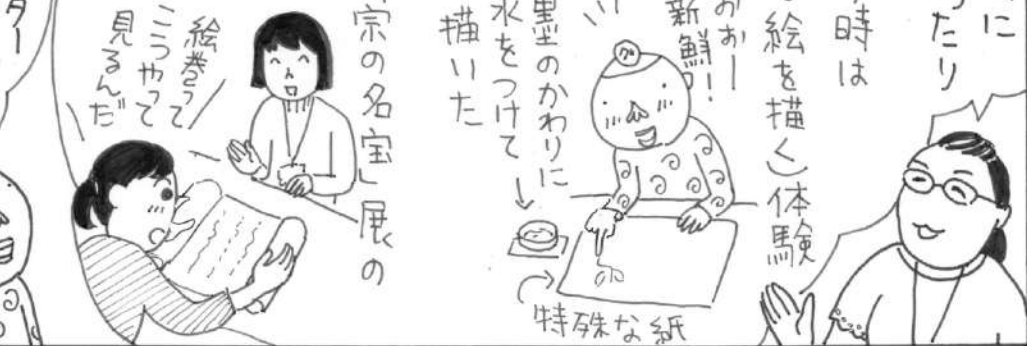 に
たり
時は
絵を描く体験
おおー
新鮮っ!
墨のかわりに
水をつけて
描いた
特殊な紙
宗の名宝」展の
絵巻って
こうやって
見るんだ
ター